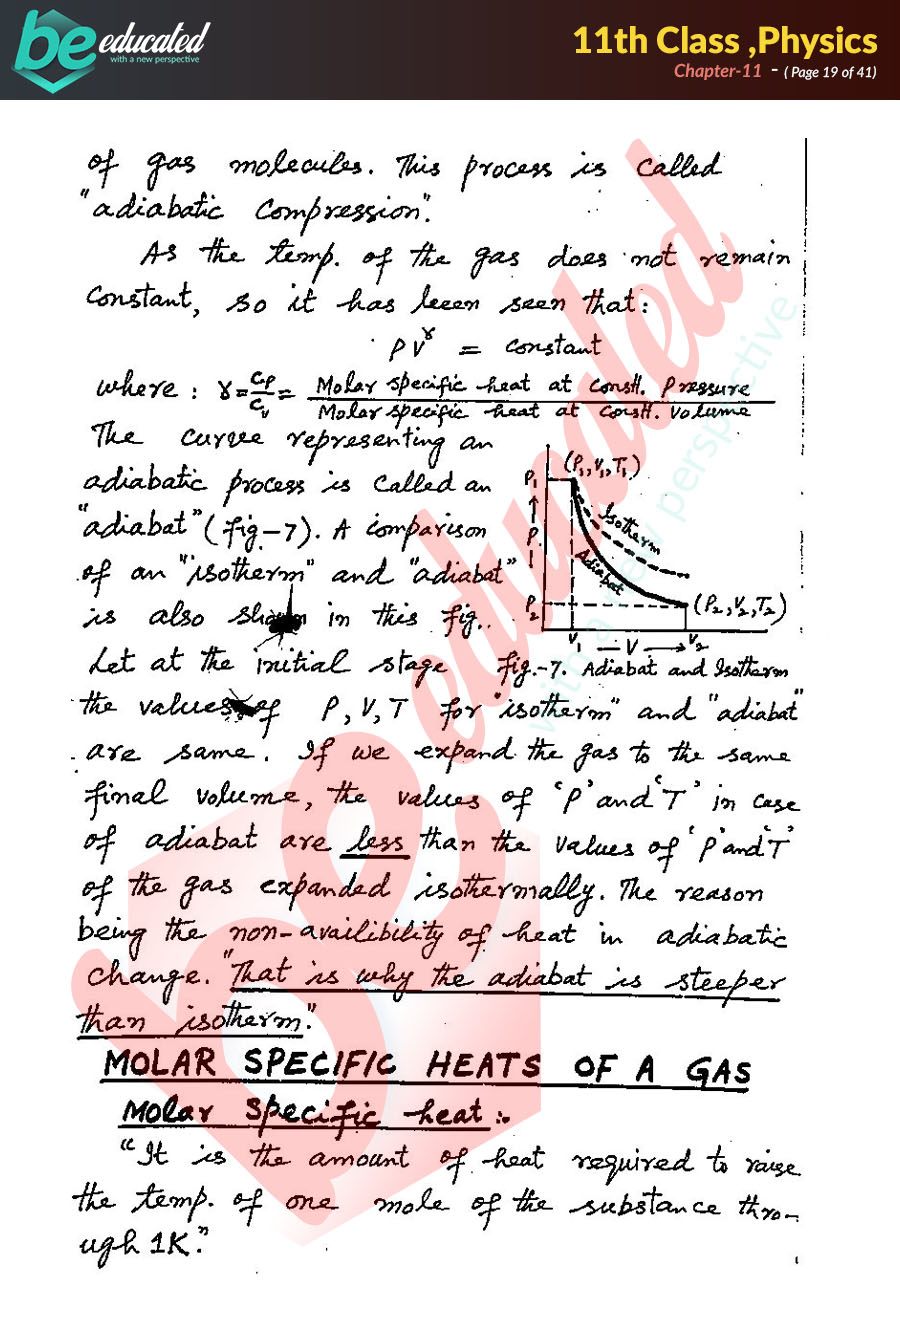 be educated
with a new perspective
11th Class ,Physics
Chapter-11 - ( Page 19 of 41)
of gas molecules. This process is called
"adiabatic compression".
As the temp. of the gas does not remain
constant, so it has been seen that:
PV^γ = constant
where : γ = Cp/Cv = Molar specific heat at constt. Pressure / Molar specific heat at constt. volume
The curve representing an
adiabatic process is called an
"adiabat" (fig-7). A comparison
of an "isotherm" and "adiabat"
is also shown in this fig..
Let at the initial stage
(P₁,V₁,T₁)
P₁
P
P₂
Isotherm
Adiabat
(P₂,V₂,T₂)
V₁
V
V₂
fig.-7. Adiabat and Isotherm
the values of P, V, T for "isotherm" and "adiabat"
are same. If we expand the gas to the same
final volume, the values of 'P' and 'T' in case
of adiabat are less than the values of 'P' and 'T'
of the gas expanded isothermally. The reason
being the non-availibility of heat in adiabatic
change. "That is why the adiabat is steeper
than isotherm".
MOLAR SPECIFIC HEATS OF A GAS
Molar Specific heat:-
"It is the amount of heat required to raise
the temp. of one mole of the substance thro-
ugh 1K."
be educated
with a new perspective